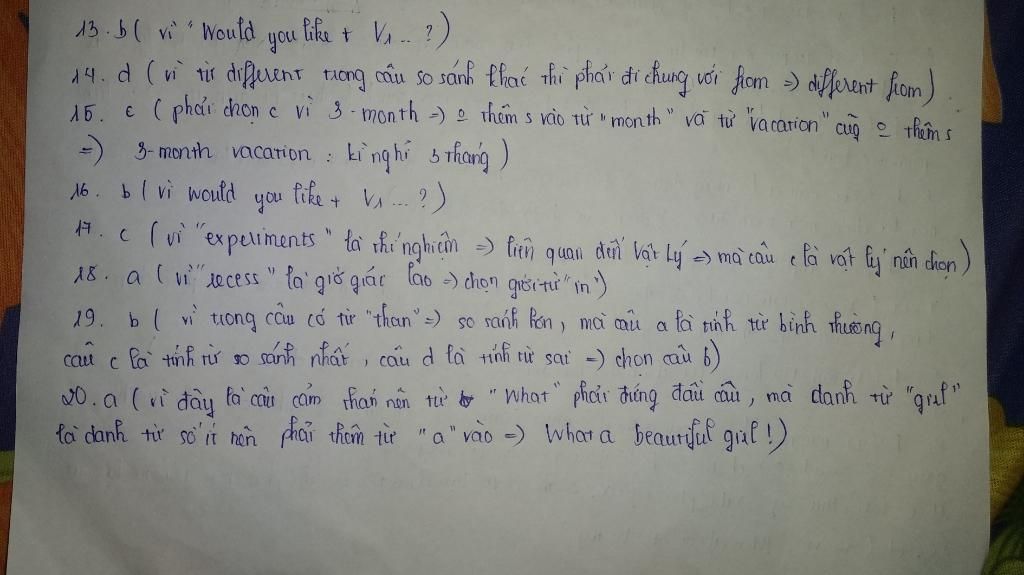 13. b ( vì " Would you like + V1 ... ? )
14. d ( vì từ different trong câu so sánh khác thì phải đi chung với from => different from )
15. c ( phải chọn c vì 3-month => o thêm s vào từ " month " và từ " vacation " cũg o thêm s
=> 3-month vacation : kì nghỉ 3 tháng )
16. b ( vì would you like + V1 ... ? )
17. c ( vì " experiments " là thí nghiệm => liên quan đến vật lý => mà câu c là vật lý nên chọn )
18. a ( vì " recess " là giờ giác lao => chọn giới từ " in " )
19. b ( vì trong câu có từ " than " => so sánh hơn, mà câu a là tính từ bình thường,
câu c là tính từ so sánh nhất, câu d là tính từ sai => chọn câu b )
20. a ( vì đây là câu cảm thán nên từ " What " phải đứng đầu câu, mà danh từ " girl "
là danh từ số ít nên phải thêm từ " a " vào => What a beautiful girl ! )